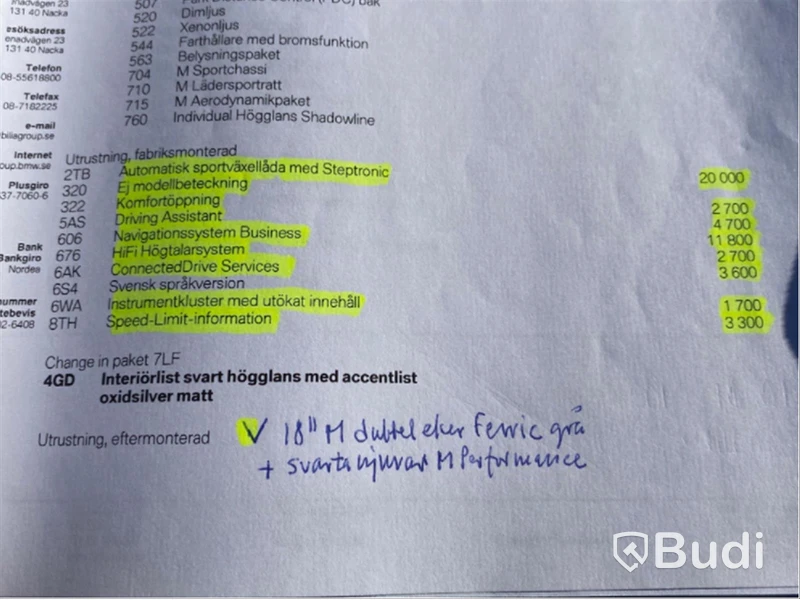 onadvägen 23
131 40 Nacka
esöksadress
onadvägen 23
131 40 Nacka
Telefon
08-55618800
Telefax
08-7182225
e-mail
biliagroup.se
Internet
oup.bmw.se
Plusgiro
37-7060-6
Bank
Bankgiro
Nordea
nummer
tebevis
02-6408
507
520 Dimljus
522 Xenonljus
544 Farthållare med bromsfunktion
563 Belysningspaket
704 M Sportchassi
710 M Lädersportratt
715 M Aerodynamikpaket
760 Individual Högglans Shadowline
Utrustning, fabriksmonterad
2TB Automatisk sportväxellåda med Steptronic 20 000
320 Ej modellbeteckning
322 Komfortöppning 2 700
5AS Driving Assistant 4 700
606 Navigationssystem Business 11 800
676 HiFi Högtalarsystem 2 700
6AK ConnectedDrive Services 3 600
6S4 Svensk språkversion
6WA Instrumentkluster med utökat innehåll 1 700
8TH Speed-Limit-information 3 300
Change in paket 7LF
4GD Interiörlist svart högglans med accentlist
oxidsilver matt
Utrustning, eftermonterad V 18" M dubbeleker Ferric grå
+ svarta njurar M Performance
Budi